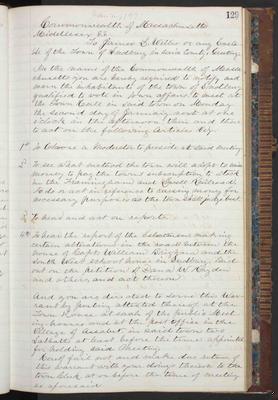 129
Commonwealth of Massachusetts
Middlesex SS.
To James L. Willis or any Consta-
ble of the Town of Sudbury in said County Greeting
In the name of the Commonwealth of Massa-
chusetts you are hereby required to notify and
warn the inhabitants of the town of Sudbury
qualified to vote in town affairs to meet at
the Town Hall in said town on Monday
the second day of January next at one
o'clock in the afternoon then and there
to act on the following articles viz.
1st To Choose a Moderator to preside at said meeting
2 To see what method the town will adopt to raise
money to pay the town's subscription to stock
in the Framingham and Lowell Railroad
to do or act in reference to raising money for
necessary purposes as the town shall judge best
3 To hear and act on reports
4th To hear the report of the Selectmen making
certain alterations in the road between the
house of Capt William and the
South West school house in Sudbury laid
out on the petition of Hayden
and others, and act thereon
And you are directed to serve this War-
rant by posting attested thereof at the
Town House at each of the public Meet-
ing houses and at the post office in the
Village of Assabet in said town two
Sabbaths at least before the time appointed
for holding said Meeting
Hereof fail not and make due return of
this warrant with your doings thereon to the
town clerk at or before the time of meeting
as aforesaid